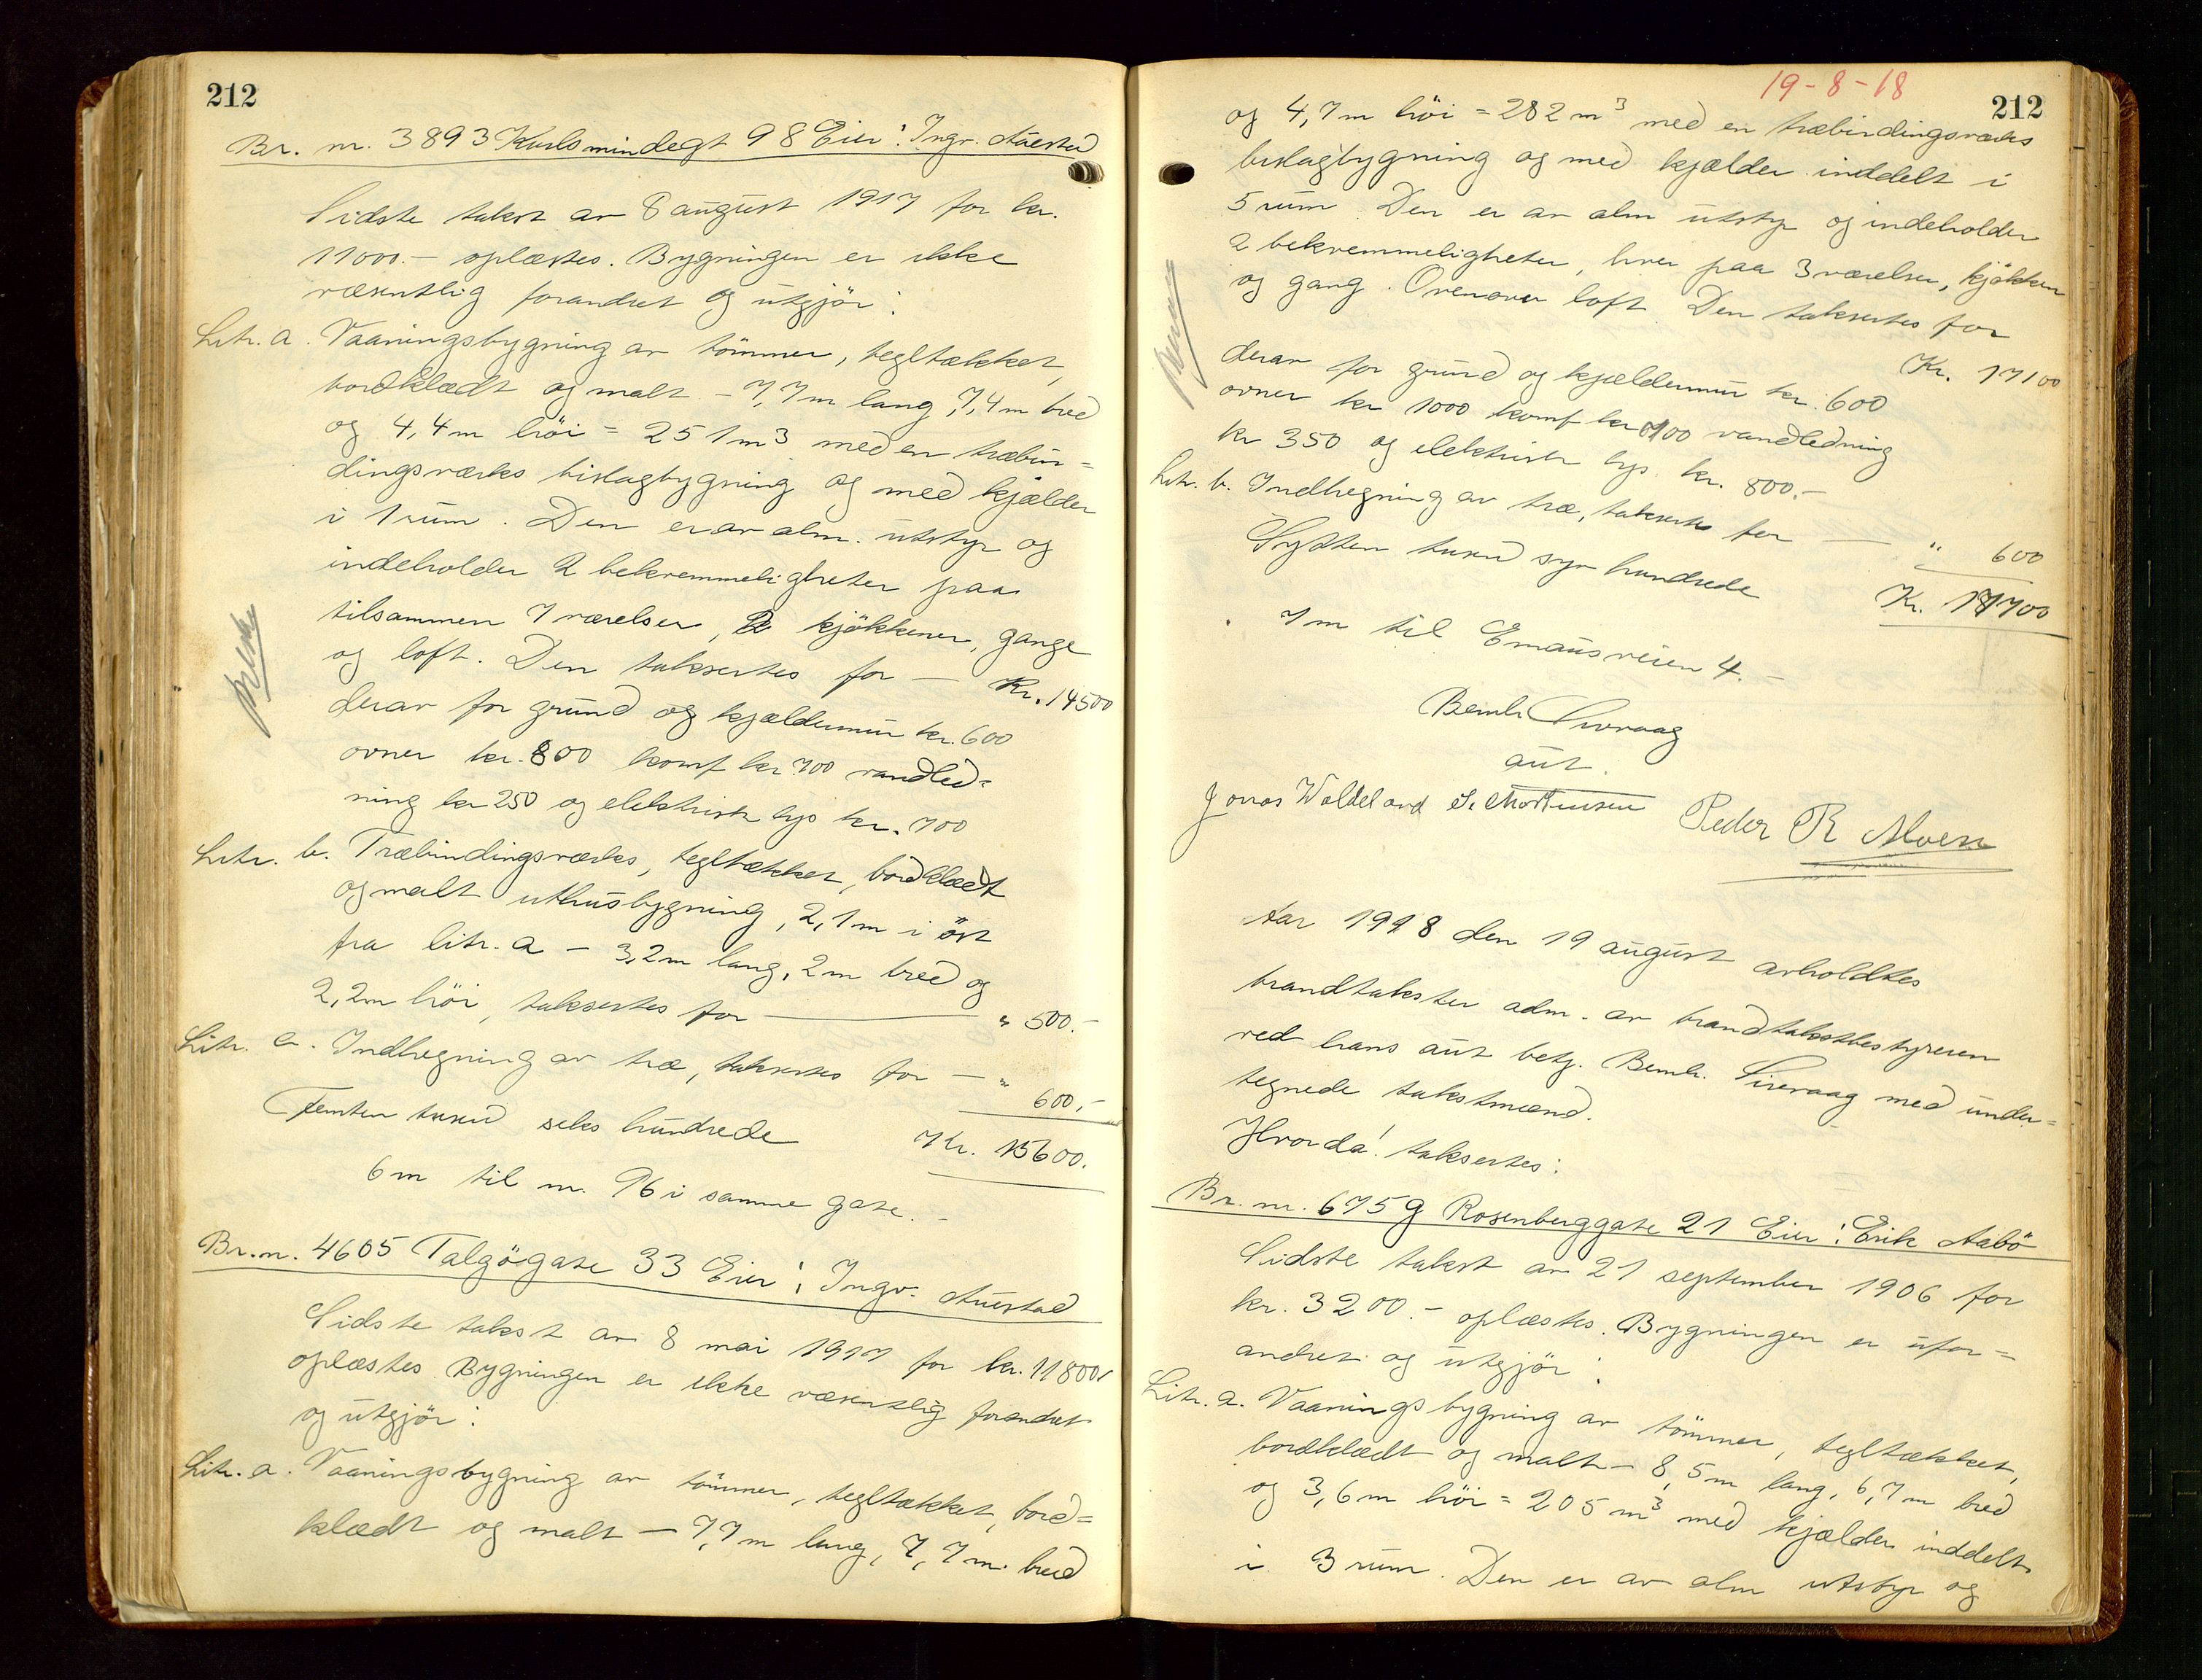 212
Br. nr. 3893 Karlsmindegt 98 Eier: Ingv. Auestad
Sidste takst av 8 august 1917 for kr.
11000.- oplæstes. Bygningen er ikke
væsentlig forandret og utgjör:
Litr. a. Vaaningsbygning av tömmer, tegltækket,
bordklædt og malt - 7,7 m lang, 7,4 m bred
og 4,4 m höi = 251 m3 med en træbin=
dingsværks bislagbygning og med kjælder
i 1 rum. Den er av alm. utstyr og
indeholder 2 bekvemmeligheter paa
tilsammen 7 værelser, 2 kjökkener, gange
og loft. Den taksertes for — Kr. 14500
derav for grund og kjældermur kr. 600
ovner kr. 800 komf kr. 700 vandled=
ning kr 250 og elektrisk lys kr. 700
Litr. b. Træbindingsværks, tegltækket, bordklædt
og malt uthusbygning, 2,1 m i öst
fra litr. a - 3,2 m lang, 2 m bred og
2,2 m höi, taksertes for — " 500.-
Litr. c. Indhegning av træ, taksertes for — " 600,-
Femten tusen seks hundrede Kr. 15600.
6 m til nr. 96 i samme gate.-
Br. n. 4605 Talgögate 33 Eier: Ingv. Auestad
Sidste takst av 8 mai 1917 for kr. 11800,
oplæstes Bygningen er ikke væsentlig forandret
og utgjör:
Litr. a. Vaaningsbygning av tömmer, tegltækket, bord=
klædt og malt — 7,7 m lang, 7,7 m. bred
19-8-18
212
og 4,7 m höi = 282 m3 med en træbindingsværks
bislagbygning og med kjælder inddelt i
5 rum. Den er av alm utstyr og indeholder
2 bekvemmeligheter, hver paa 3 værelser, kjökken
og gang. Ovenover loft. Den taksertes for
Kr. 17100
derav for grund og kjældermur kr. 600
ovner kr 1000 komf kr 700 vandledning
kr 350 og elektrisk lys kr. 800.-
Litr. b. Indhegning av træ, taksertes for — " 600
Sytten tusen syv hundrede Kr. 17700
7 m til Emausveien 4.-
Bernh Sirevaag
aut.
Jonas Waldeland S. Mortensen Peder R Moen
Aar 1918 den 19 august avholdtes
brandtakster adm. av brandtakstbestyreren
ved hans aut betj. Bernh. Sirevaag med under=
tegnede takstmænd.
Hvorda! taksertes:
Br. nr. 675 g Rosenberggate 21 Eier: Erik Aabö
Sidste takst av 21 september 1906 for
kr. 3200.- oplæstes. Bygningen er ufor=
andret og utgjör:
Litr. a. Vaaningsbygning av tömmer, tegltækket,
bordklædt og malt - 8,5 m lang, 6,7 m bred
og 3,6 m höi = 205 m3 med kjælder inddelt
i 3 rum. Den er av alm utstyr og